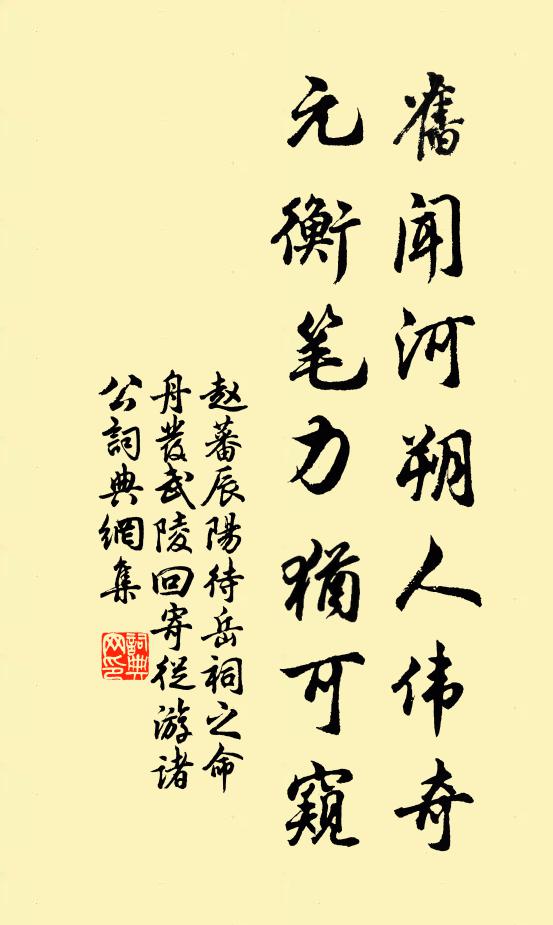 舊闻河朔人伟奇
元衡笔力猶可窺
赵蕃辰陽待岳祠之命
舟發武陵回寄從游诸
公詞典網集
詞典網印